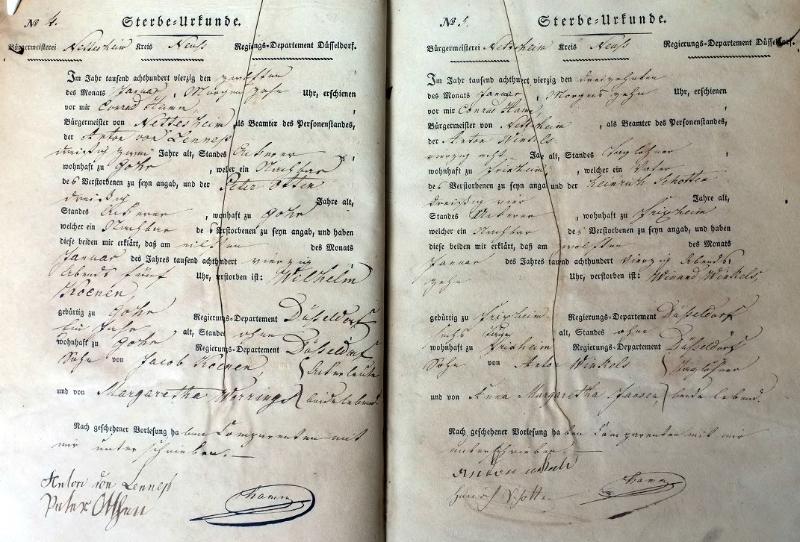 No 4.
Sterbe-Urkunde.
Bürgermeisterei Nettesheim Kreis Neuß Regierungs-Departement Düsseldorf.
Im Jahr tausend achthundert vierzig den zwölften
des Monats Januar, Morgens zehn Uhr, erschienen
vor mir Conrad Hamm
Bürgermeister von Nettesheim, als Beamter des Personenstandes,
der Anton von Lennep
dreißig zwei Jahre alt, Standes Ackerer,
wohnhaft zu Gohr, welcher ein Nachbar
des Verstorbenen zu seyn angab, und der Peter Otten
dreißig Jahre alt,
Standes Ackerer, wohnhaft zu Gohr
welcher ein Nachbar des Verstorbenen zu seyn angab, und haben
diese beiden mir erklärt, daß am eilften des Monats
Januar des Jahres tausend achthundert vierzig
Abends fünf Uhr, verstorben ist: Wilhelm
Koenen
gebürtig zu Gohr Regierungs-Departement Düsseldorf
ein Jahr alt, Standes ohne
wohnhaft zu Gohr Regierungs-Departement Düsseldorf
Sohn von Jacob Koenen Ackersleute
und von Margaretha beide lebend
Nach geschehener Vorlesung haben Comparenten mit
mir unterschrieben.
Anton von Lennep
Peter Otten
Hamm
No 5.
Sterbe-Urkunde.
Bürgermeisterei Nettesheim Kreis Neuß Regierungs-Departement Düsseldorf.
Im Jahr tausend achthundert vierzig den dreizehnten
des Monats Januar, Morgens zehn Uhr, erschienen
vor mir Conrad Hamm
Bürgermeister von Nettesheim, als Beamter des Personenstandes,
der Anton Winkels
vierzig Jahre alt, Standes Taglöhner
wohnhaft zu Frixheim, welcher ein Vater
des Verstorbenen zu seyn angab und der Heinrich Schotten
dreißig vier Jahre alt,
Standes Ackerer, wohnhaft zu Frixheim
welcher ein Nachbar des Verstorbenen zu seyn angab, und haben
diese beiden mir erklärt, daß am zwölften des Monats
Januar des Jahres tausend achthundert vierzig Abends
zehn Uhr, verstorben ist: Winand Winkels,
gebürtig zu Frixheim Regierungs-Departement Düsseldorf
sechs alt, Standes ohne
wohnhaft zu Frixheim Regierungs-Departement Düsseldorf
Sohn von Anton Winkels Taglöhner
und von Anna Margaretha Jansen beide lebend.
Nach geschehener Vorlesung haben Comparenten mit mir
unterschrieben.
Hamm